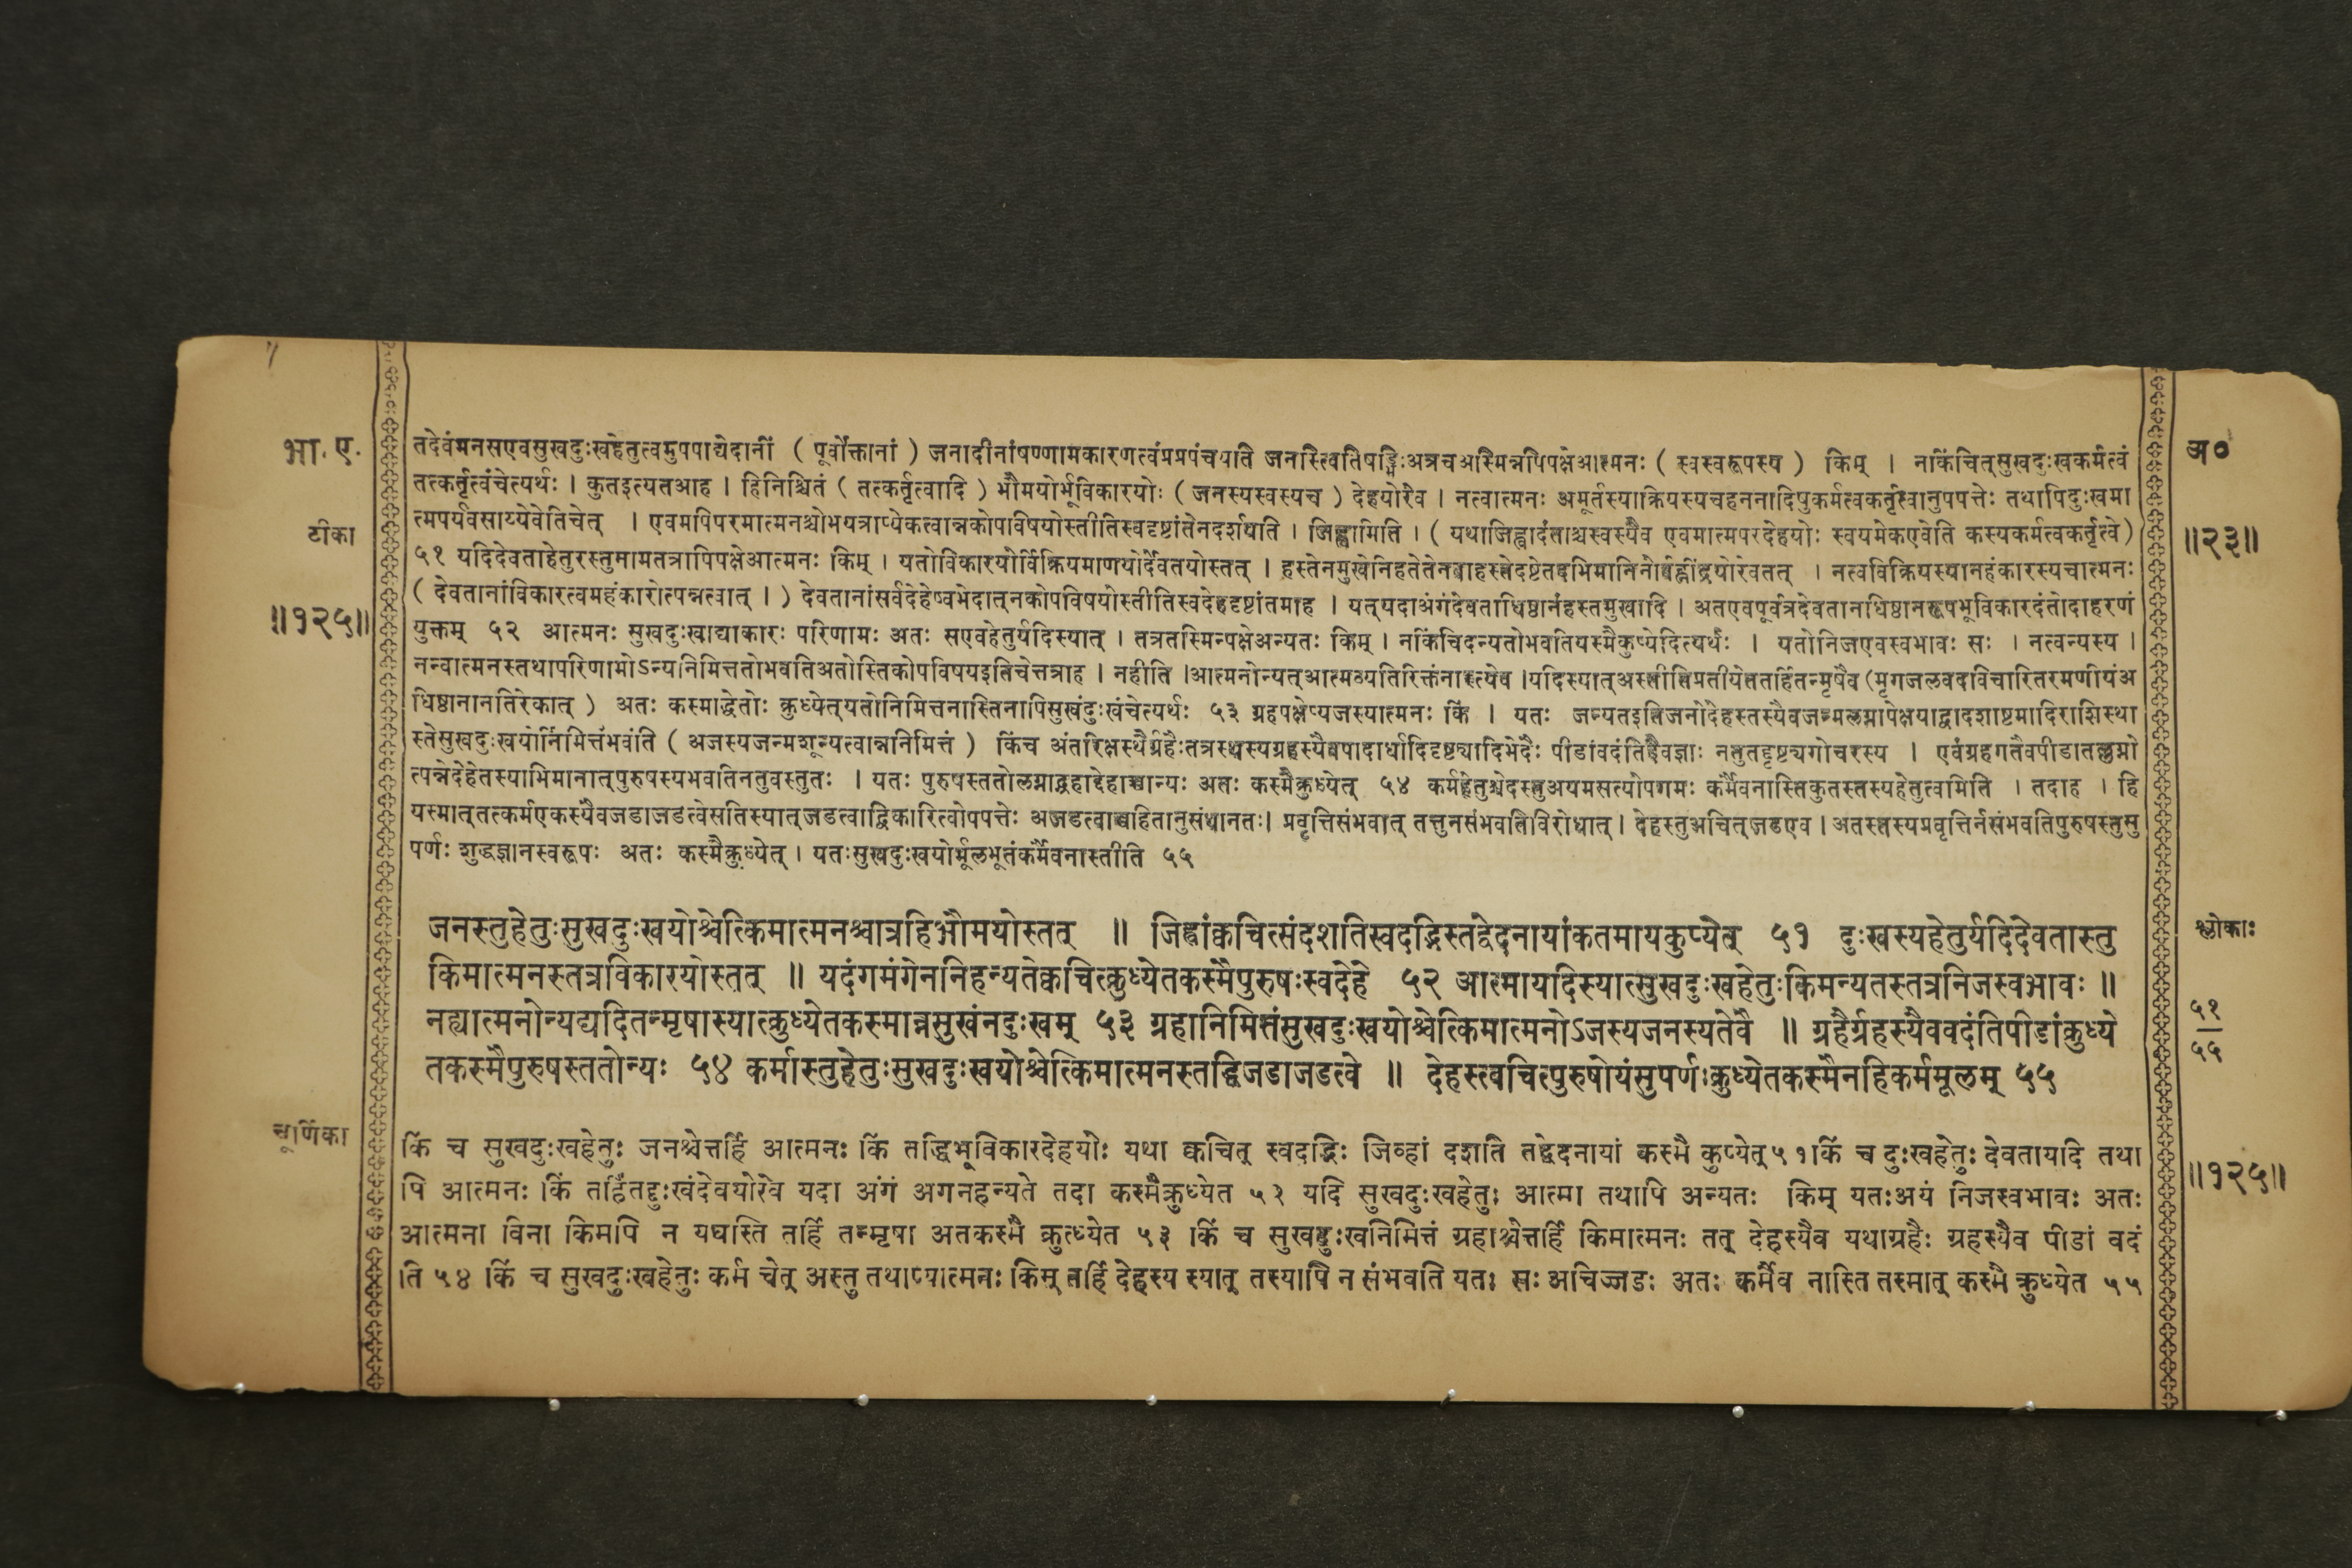 भा. ए.
अ०
तदेवंमनसएवसुखदुःखहेतुत्वमुपपाद्येदानीं ( पूर्वोक्तानां ) जनादीनांषण्णामकारणत्वंप्रपंचयति जनस्त्वितिषड्भिःअत्रचअस्मिन्नपिपक्षेआत्मनः ( स्वस्वरूपस्य ) किम् । नकिंचित्सुखदुःखकर्मत्वं
तत्कर्तृत्वंचेत्यर्थः । कुतइत्यतआह । हिनिश्चितं ( तत्कर्तृत्वादि ) भौमयोर्भूविकारयोः ( जनस्यस्वस्यच ) देहयोरेव । नत्वात्मनः अमूर्तस्याक्रियस्यचहननादिषुकर्मत्वकर्तृत्वानुपपत्तेः तथापिदुःखमा
टीका
त्मपर्यवसाय्येवेतिचेत् । एवमपिपरमात्मनश्चोभयत्राप्येकत्वान्नकोपविषयोस्तीतिस्वदृष्टांतेनदर्शयति । जिह्वामिति । ( यथाजिह्वादंताश्चस्वस्यैव एवमात्मपरदेहयोः स्वयमेकएवेति कस्यकर्मत्वकर्तृत्वे )
॥२३॥
५१ यदिदेवताहेतुरस्तुनामतत्रापिपक्षेआत्मनः किम् । यतोविकारयोर्विक्रियमाणयोर्देवतयोस्तत् । हस्तेनमुखेनिहतेतेनवाहस्तेदष्टेतदभिमानिनोर्वह्नींद्रयोरेवतत् । नत्वविक्रियस्यानहंकारस्यचात्मनः
( देवतानांविकारत्वमहंकारोत्पन्नत्वात् । ) देवतानांसर्वदेहेष्वभेदात्नकोपविषयोस्तीतिस्वदेहदृष्टांतमाह । यत्यदाअंगंदेवताधिष्ठानंहस्तमुखादि । अतएवपूर्वत्रदेवतानधिष्ठानरूपभूविकारदंतोदाहरणं
॥१२५॥
युक्तम् ५२ आत्मनः सुखदुःखाद्याकारः परिणामः अतः सएवहेतुर्यदिस्यात् । तत्रतस्मिन्पक्षेअन्यतः किम् । नकिंचिदन्यतोभवतियस्मैकुप्येदित्यर्थः । यतोनिजएवस्वभावः सः । नत्वन्यस्य ।
नन्वात्मनस्तथापरिणामोऽन्यनिमित्ततोभवतिअतोस्तिकोपविषयइतिचेत्तत्राह । नहीति ।आत्मनोन्यत्आत्मव्यतिरिक्तंनास्त्येव ।यदिस्यात्अस्तीतिप्रतीयेततर्हितन्मृषैव (मृगजलवदविचारितरमणीयंअ
धिष्ठानानतिरेकात् ) अतः कस्माद्धेतोः क्रुध्येत्यतोनिमित्तंनास्तिनापिसुखंदुःखंचेत्यर्थः ५३ ग्रहपक्षेप्यजस्यात्मनः किं । यतः जन्यतइतिजनोदेहस्तस्यैवजन्मलग्नापेक्षयाद्वादशाष्टमादिराशिस्था
स्तेसुखदुःखयोर्निमित्तंभवंति ( अजस्यजन्मशून्यत्वान्ननिमित्तं ) किंच अंतरिक्षस्थैर्ग्रहैःतत्रस्थस्यग्रहस्यैवपादार्धादिदृष्ट्यादिभेदैः पीडांवदंतिदैवज्ञाः नतुतद्दृष्ट्यगोचरस्य । एवंग्रहगतैवपीडातल्लग्नो
त्पन्नेदेहेतस्याभिमानात्पुरुषस्यभवतिनतुवस्तुतः । यतः पुरुषस्ततोलग्नाद्ग्रहाद्देहाच्चान्यः अतः कस्मैक्रुध्येत् ५४ कर्महेतुश्चेदस्तुअयमसत्योपगमः कर्मैवनास्तिकुतस्तस्यहेतुत्वमिति । तदाह । हि
यस्मात्तत्कर्मएकस्यैवजडाजडत्वेसतिस्यात्जडत्वाद्विकारित्वोपपत्तेः अजडत्वाच्चहितानुसंधानतः। प्रवृत्तिसंभवात् तत्तुनसंभवतिविरोधात् । देहस्तुअचित्जडएव । अतस्तस्यप्रवृत्तिर्नसंभवतिपुरुषस्तुसु
पर्णः शुद्धज्ञानस्वरूपः अतः कस्मैक्रुध्येत् । यतःसुखदुःखयोर्मूलभूतंकर्मैवनास्तीति ५५
श्लोकाः
जनस्तुहेतुःसुखदुःखयोश्चेत्किमात्मनश्चात्रहिभौमयोस्तत् ॥ जिह्वांक्वचित्संदशतिस्वदद्भिस्तद्वेदनायांकतमायकुप्येत् ५१ दुःखस्यहेतुर्यदिदेवतास्तु
किमात्मनस्तत्रविकारयोस्तत् ॥ यदंगमंगेननिहन्यतेक्वचित्क्रुध्येतकस्मैपुरुषःस्वदेहे ५२ आत्मायदिस्यात्सुखदुःखहेतुःकिमन्यतस्तत्रनिजस्वभावः ॥
नह्यात्मनोन्यद्यदितन्मृषास्यात्क्रुध्येतकस्मान्नसुखंनदुःखम् ५३ ग्रहानिमित्तंसुखदुःखयोश्चेत्किमात्मनोऽजस्यजनस्यतेवै ॥ ग्रहैर्ग्रहस्यैववदंतिपीडांक्रुध्ये
५१
५५
तकस्मैपुरुषस्ततोन्यः ५४ कर्मास्तुहेतुःसुखदुःखयोश्चेत्किमात्मनस्तद्धिजडाजडत्वे ॥ देहस्त्वचित्पुरुषोयंसुपर्णःक्रुध्येतकस्मैनहिकर्ममूलम् ५५
चूर्णिका
किं च सुखदुःखहेतुः जनश्चेत्तर्हि आत्मनः किं तद्धिभूविकारदेहयोः यथा क्वचित् स्वदद्भिः जिव्हां दशति तद्वेदनायां कस्मै कुप्येत्५१किं च दुःखहेतुः देवतायदि तथा
॥१२५॥
पि आत्मनः किं तर्हितद्दुःखंदेवयोरेव यदा अंगं अगेनहन्यते तदा कस्मैक्रुध्येत ५२ यदि सुखदुःखहेतुः आत्मा तथापि अन्यतः किम् यतःअयं निजस्वभावः अतः
आत्मना विना किमपि न यद्यस्ति तर्हि तन्मृषा अतकस्मै क्रुत्ध्येत ५३ किं च सुखदुःखनिमित्तं ग्रहाश्चेत्तर्हि किमात्मनः तत् देहस्यैव यथाग्रहैः ग्रहस्यैव पीडां वदं
ति ५४ किं च सुखदुःखहेतुः कर्म चेत् अस्तु तथाप्यात्मनः किम् तर्हि देहस्य स्यात् तस्यापि न संभवति यतः सः अचिज्जडः अतः कर्मैव नास्ति तस्मात् कस्मै क्रुध्येत ५५